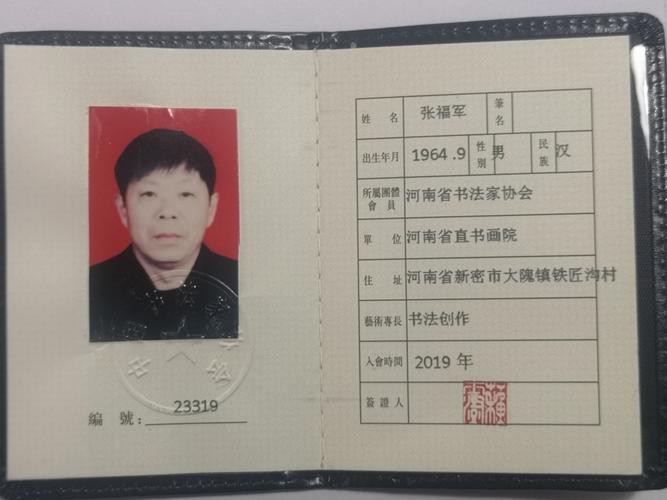 編 號: 23319
姓 名 张福军 筆名
出生年月 1964.9 性别 男 民族 汉
所屬團體會員 河南省书法家协会
單 位 河南省直书画院
住 址 河南省新密市大隗镇铁匠沟村
藝術專長 书法创作
入會時間 2019 年
簽證人